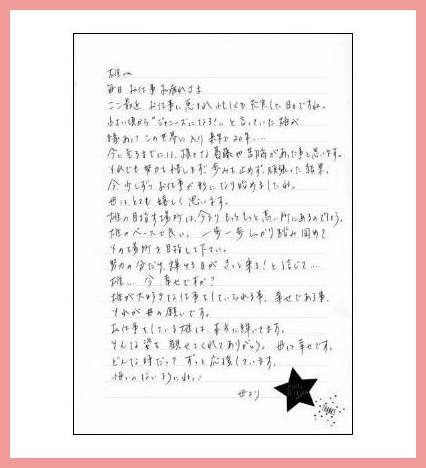 雄へ
毎日 お仕事 お疲れさま
ここ最近 お仕事に恵まれ 忙しくも 充実した日々ですね。
小さい頃から"ジャニーズになる!"と言っていた雄が
縁あって この世界に入り 来年で20年....
今に至るまでには、様々な葛藤や苦悩があった事と思います。
それでも努力を惜しまず 歩みを止めず、頑張った結果、
今 少しずつ お仕事が形になり始めましたね。
母は、とても 嬉しく 思います。
雄の目指す場所は、今より もっと もっと 高い所にあるのでしょう。
雄のペースで良い。 一歩一歩 しっかり踏み固めて
その場所を目指して下さい。
努力の分だけ、輝ける日が きっと来る! と信じて...
雄... 今 幸せですか?
雄が大好きな仕事をしていられる事、幸せである事、
それが母の願いです。
お仕事をしている雄は、本当に輝いてます。
そんな姿を 観せてくれてありがとう。 母は幸せです。
どんな時だって ずっと 応援しています。
悔いのないようにね!
母より